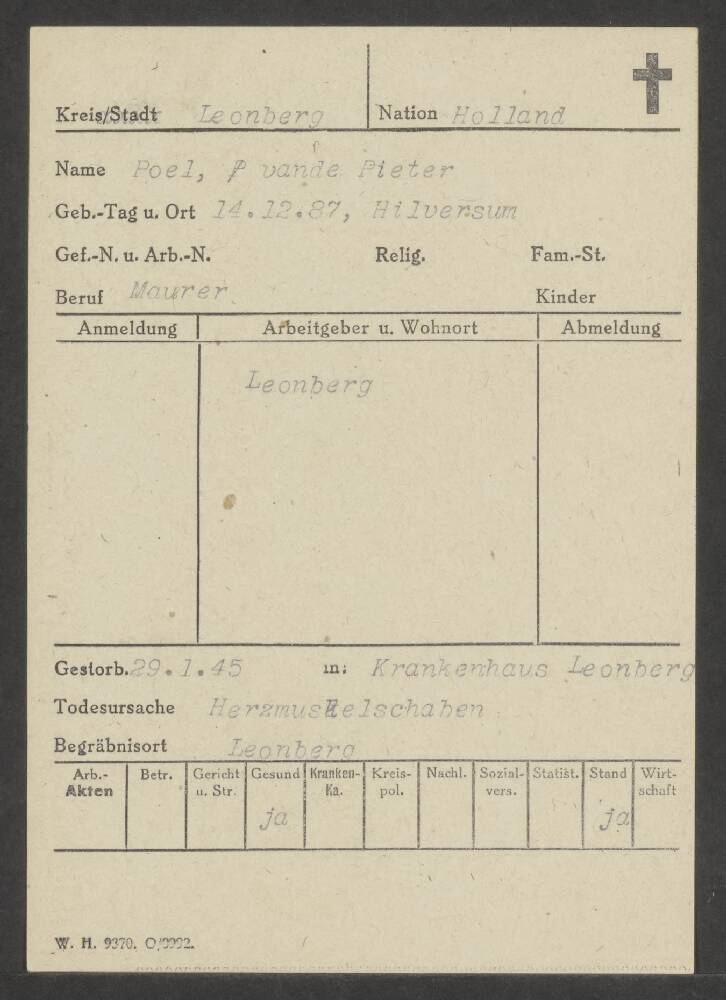 Kreis/Stadt Leonberg Nation Holland
Name Poel, P vande Pieter
Geb.-Tag u. Ort 14.12.87, Hilversum
Gef.-N. u. Arb.-N. Relig. Fam.-St.
Beruf Maurer Kinder
Anmeldung Arbeitgeber u. Wohnort Abmeldung
Leonberg
Gestorb. 29.1.45 in: Krankenhaus Leonberg
Todesursache Herzmuskelschaben
Begräbnisort Leonberg
Arb.- Betr. Gericht Gesund Kranken- Kreis- Nachl. Sozial- Statist. Stand Wirt-
Akten u. Str. Ka. pol. vers. schaft
ja ja
W. H. 9370.